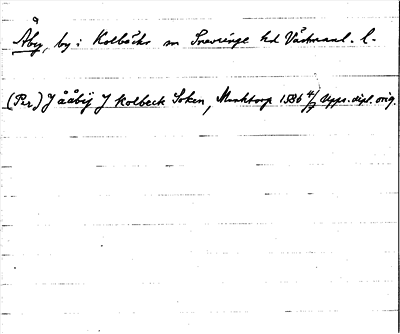 Åby, by i Kolbäcks sn Snevringe hd Västmanl. l.
(Per) J ååbij J Kolbeck Soken, Munktorp 1586 4/7 Upps. dipl. orig.